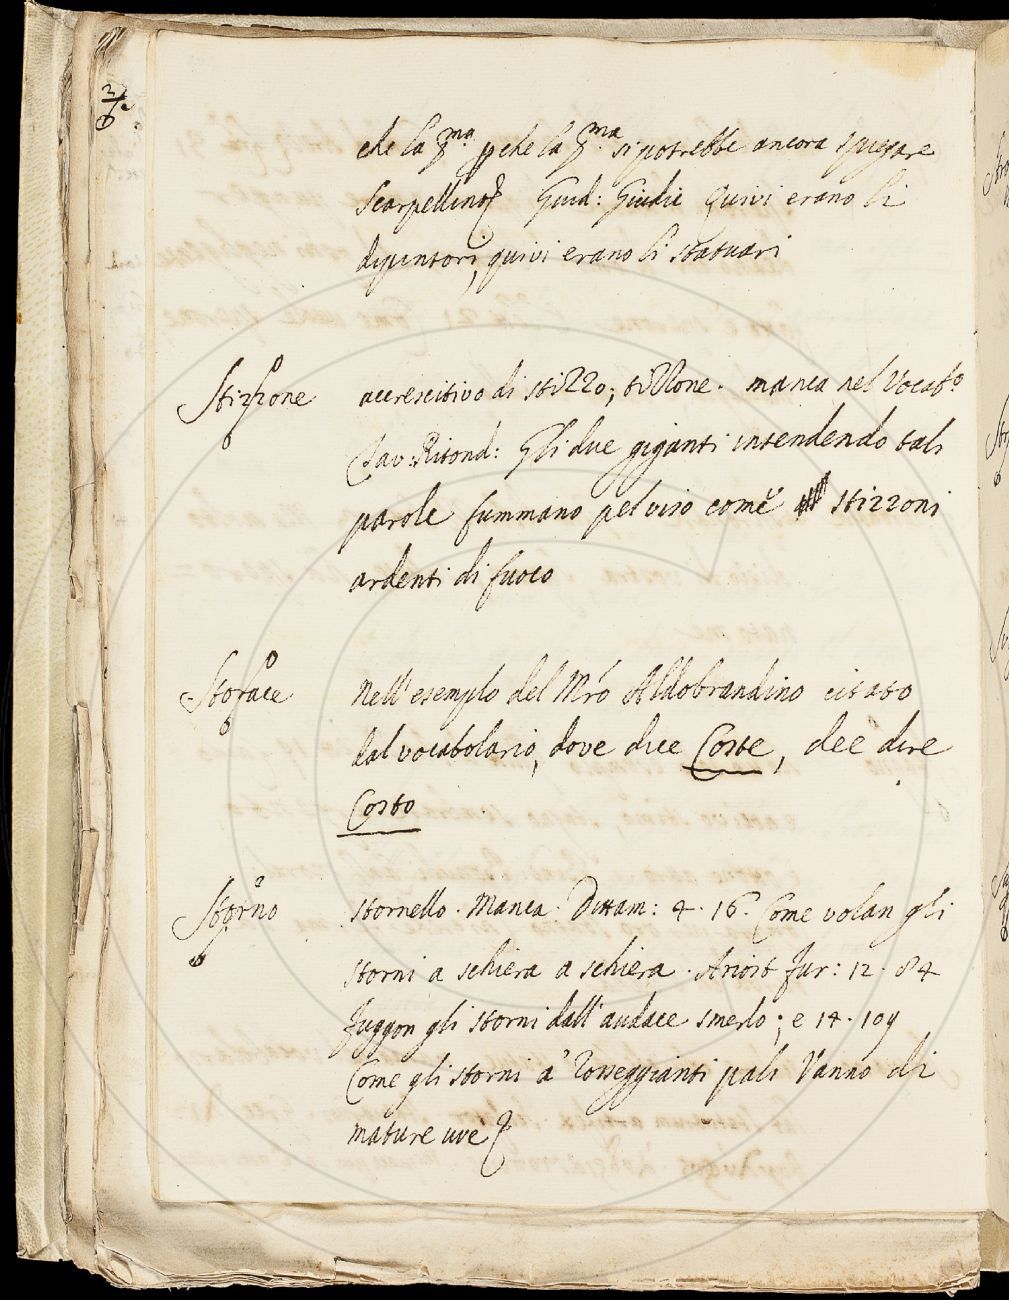 che la p.ma p che la p.ma si potrebbe ancora spiegare
Scarpellino Guid: Giudic Quivi erano li
dipintori, quivi erano li statuari
Stizzone
accrescitivo di stizzo, tizzone. manca nel Vocab.o
Tav: Ritond: Gli due giganti intendendo tali
parole fummano pel viso come stizzoni
ardenti di fuoco
Storace
Nell'esempio del Mro Aldobrandino citato
dal vocabolario, dove dice Coste, dee dire
Costo
Storno
Stornello. Manca. Dittam: 4. 16. Come volan gli
storni a schiera a schiera. Ariost fur: 12. 84
fuggon gli storni dall'audace smerlo; e 14. 109
Come gli storni a' rosseggianti pali Vanno di
mature uve